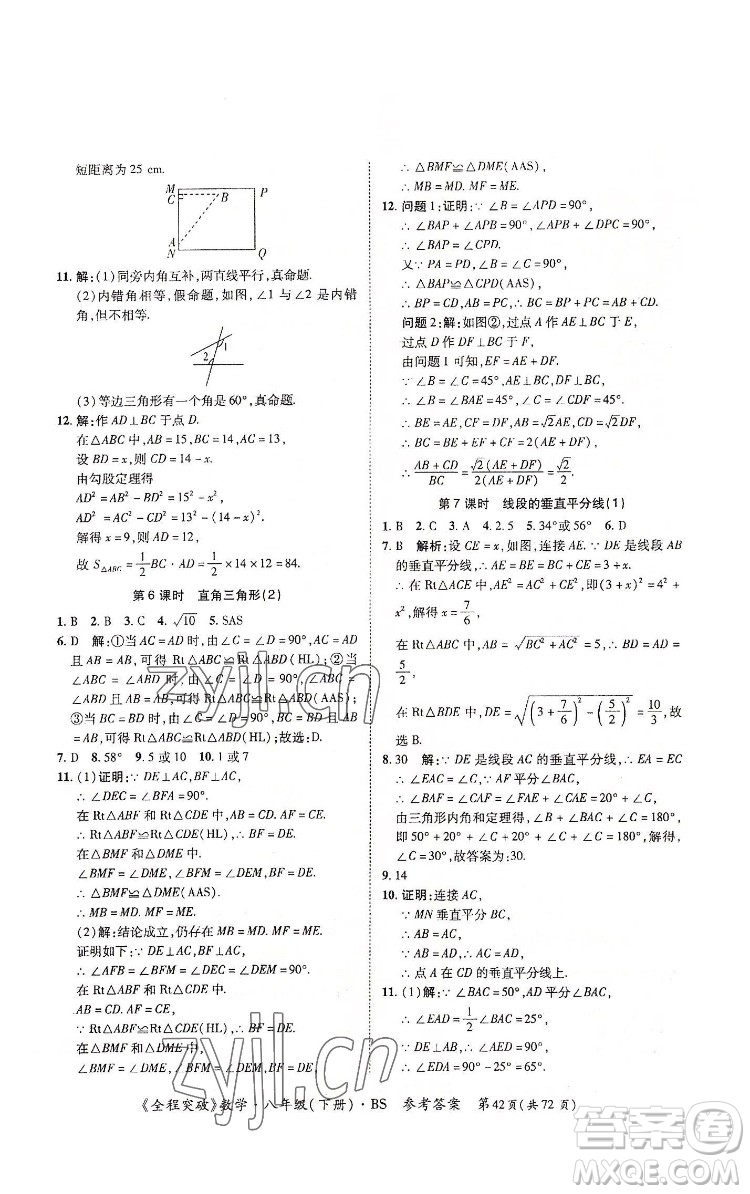 短距离为 25 cm.
M B P
C
A
N Q
11. 解:(1)同旁内角互补,两直线平行,真命题.
(2)内错角相等,假命题,如图,∠1 与∠2 是内错
角,但不相等.
1
2
(3)等边三角形有一个角是 60°,真命题.
12. 解:作 AD⊥BC 于点 D.
在△ABC 中,AB=15,BC=14,AC=13,
设 BD=x,则 CD=14-x.
由勾股定理得
AD²=AB²-BD²=15²-x²,
AD²=AC²-CD²=13²-(14-x)².
解得 x=9,则 AD=12.
故 S△ABC=1/2 BC·AD=1/2×14×12=84.
第 6 课时 直角三角形(2)
1. B 2. B 3. C 4. √10 5. SAS
6. D 解:①当 AC=AD 时,由∠C=∠D=90°,AC=AD
且 AB=AB,可得 Rt△ABC≌Rt△ABD(HL);②当
∠ABC=∠ABD 时,由∠C=∠D=90°,∠ABC=
∠ABD 且 AB=AB,可得 Rt△ABC≌Rt△ABD(AAS);
③当 BC=BD 时,由∠C=∠D=90°,BC=BD 且 AB=
AB,可得 Rt△ABC≌Rt△ABD(HL);故选:D.
7. D 8. 58° 9. 5 或 10 10. 1 或 7
11. (1)证明:∵ DE⊥AC,BF⊥AC,
∴ ∠DEC=∠BFA=90°.
在 Rt△ABF 和 Rt△CDE 中,
AB=CD,AF=CE.
∴ Rt△ABF≌Rt△CDE(HL),∴ BF=DE.
在△BMF 和△DME 中.
∠BMF=∠DME,∠BFM=∠DEM,BF=DE,
∴ △BMF≌△DME(AAS).
∴ MB=MD,MF=ME.
(2)解:结论成立,仍存在 MB=MD,MF=ME.
证明如下:∵ DE⊥AC,BF⊥AC,
∴ ∠AFB=∠BFM=∠DEC=∠DEM=90°.
在 Rt△ABF 和 Rt△CDE 中,
AB=CD,AF=CE.
∴ Rt△ABF≌Rt△CDE(HL),∴ BF=DE.
在△BMF 和△DME 中,
∠BMF=∠DME,∠BFM=∠DEM,BF=DE.
∴ △BMF≌△DME(AAS),
∴ MB=MD. MF=ME.
12. 问题 1:证明:∵ ∠B=∠APD=90°,
∴ ∠BAP+∠APB=90°,∠APB+∠CPD=90°,
∴ ∠BAP=∠CPD.
又∵ PA=PD,∠B=∠C=90°,
∴ △BAP≌△CPD(AAS).
∴ BP=CD,AB=PC,∴ BC=BP+PC=AB+CD;
问题 2:解:如图②,过点 A 作 AE⊥BC 于 E,
过点 D 作 DF⊥BC 于 F,
由问题 1 可知,EF=AE+DF,
∵ ∠B=∠C=45°,AE⊥BC,DF⊥BC,
∴ ∠B=∠BAE=45°,∠C=∠CDF=45°,
∴ BE=AE,CF=DF,AB=√2AE,CD=√2DF,
∴ BC=BE+EF+CF=2(AE+DF),
∴ (AB+CD)/BC=√2(AE+DF)/2(AE+DF)=√2/2.
第 7 课时 线段的垂直平分线(1)
1. B 2. C 3. A 4. 2.5 5. 34°或 56° 6. D
7. B 解析:设 CE=x,如图,连接 AE. ∵ DE 是线段 AB
的垂直平分线,∴ AE=BE=BC+CE=3+x,
∴ 在 Rt△ACE 中,AE²=AC²+CE²,即(3+x)²=4²+
x²,解得 x=7/6,
∵ 在 Rt△ABC 中,AB=√(BC²+AC²)=5,∴ BD=AD=
5/2,
∴ 在 Rt△BDE 中,DE=√((3+7/6)²-(5/2)²)=10/3,故
选 B.
8. 30 解:∵ DE 是线段 AC 的垂直平分线,∴ EA=EC
∴ ∠EAC=∠C,∴ ∠FAC=∠FAE+∠EAC=20°+∠C,
∵ ∠BAF=∠CAF=∠FAE+∠EAC=20°+∠C,
由三角形内角和定理得,∠B+∠BAC+∠C=180°,
即 50°+20°+∠C+20°+∠C+∠C=180°,解得
∠C=30°,故答案为:30.
9. 14
10. 证明:连接 AC,
∵ MN 垂直平分 BC,
∴ AB=AC,
∵ AB=AD,∴ AC=AD,
∴ 点 A 在 CD 的垂直平分线上.
11. (1)解:∵ ∠BAC=50°,AD 平分∠BAC,
∴ ∠EAD=1/2∠BAC=25°,
∵ DE⊥AB,∴ ∠AED=90°,
∴ ∠EDA=90°-25°=65°.
《全程突破》数学·八年级(下册)·BS 参考答案 第42页(共72页)
zyjl.cn
zyjl.cn
答案圈
MXQE.COM